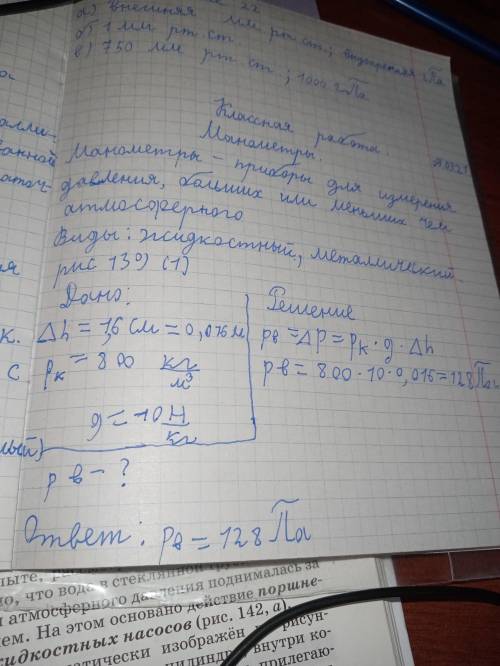 а) внешняя мм рт ст; внутренняя гПа
б) 1 мм рт. ст.
в) 750 мм рт. ст ; 1000 гПа
Классная работа.
Манометры.
Манометры – приборы для измерения
давления, больших или меньших чем
атмосферного
Виды: жидкостный, металлический.
рис 139 (1)
Дано:
Δh = 1,6 см = 0,016 м
ρк = 800 кг/м³
g = 10 Н/кг
р в - ?
Решение
рв = Δр = ρк · g · Δh
р в = 800 · 10 · 0,016 = 128 Па
Ответ: рв = 128 Па
что вода в стеклянной
атмосферного давления поднималась за
ем. На этом основано действие поршне-
жидкостных насосов (рис. 142, а).
изображён
цилиндра, внутри ко-
прилегаю-